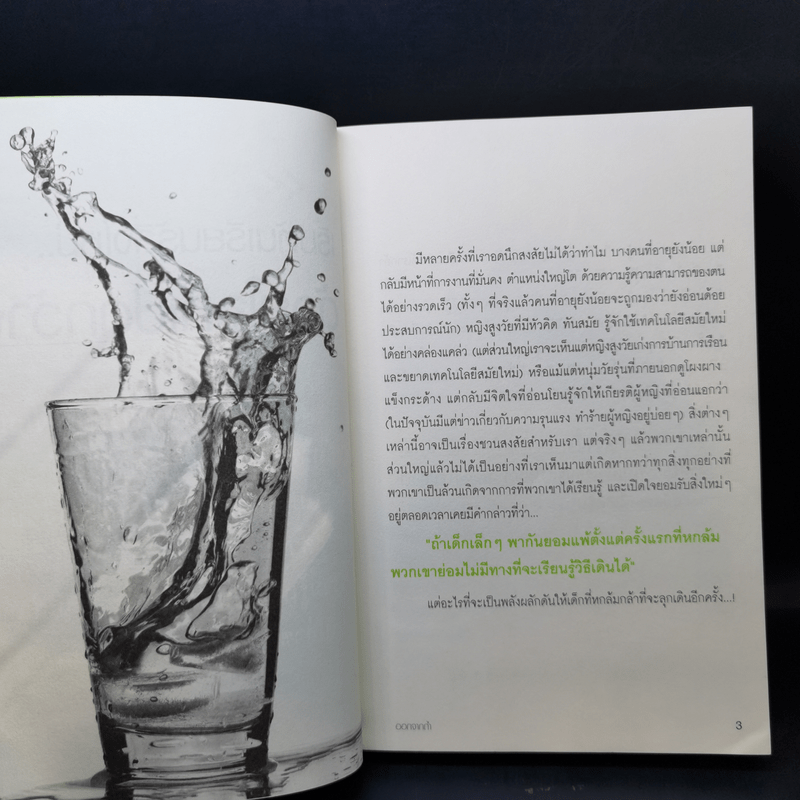 มีหลายครั้งที่เราอดนึกสงสัยไม่ได้ว่าทำไม บางคนที่อายุยังน้อย แต่
กลับมีหน้าที่การงานที่มั่นคง ตำแหน่งใหญ่โต ด้วยความรู้ความสามารถของตน
ได้อย่างรวดเร็ว (ทั้งๆ ที่จริงแล้วคนที่อายุยังน้อยจะถูกมองว่ายังอ่อนด้อย
ประสบการณ์นัก) หญิงสูงวัยที่มีหัวคิด ทันสมัย รู้จักใช้เทคโนโลยีสมัยใหม่
ได้อย่างคล่องแคล่ว (แต่ส่วนใหญ่เราจะเห็นแต่หญิงสูงวัยเก่งการบ้านการเรือน
และขยาดเทคโนโลยีสมัยใหม่) หรือแม้แต่หนุ่มวัยรุ่นที่ภายนอกดูโผงผาง
แข็งกระด้าง แต่กลับมีจิตใจที่อ่อนโยนรู้จักให้เกียรติผู้หญิงที่อ่อนแอกว่า
(ในปัจจุบันมีแต่ข่าวเกี่ยวกับความรุนแรง ทำร้ายผู้หญิงอยู่บ่อยๆ) สิ่งต่างๆ
เหล่านี้อาจเป็นเรื่องชวนสงสัยสำหรับเรา แต่จริงๆ แล้วพวกเขาเหล่านั้น
ส่วนใหญ่แล้วไม่ได้เป็นอย่างที่เราเห็นมาแต่เกิดหากทว่าทุกสิ่งทุกอย่างที่
พวกเขาเป็นล้วนเกิดจากการที่พวกเขาได้เรียนรู้ และเปิดใจยอมรับสิ่งใหม่ๆ
อยู่ตลอดเวลาเคยมีคำกล่าวที่ว่า...
"ถ้าเด็กเล็กๆ พากันยอมแพ้ตั้งแต่ครั้งแรกที่หกล้ม
พวกเขาย่อมไม่มีทางที่จะเรียนรู้วิธีเดินได้"
แต่อะไรที่จะเป็นพลังผลักดันให้เด็กที่หกล้มกล้าที่จะลุกเดินอีกครั้ง...!
3